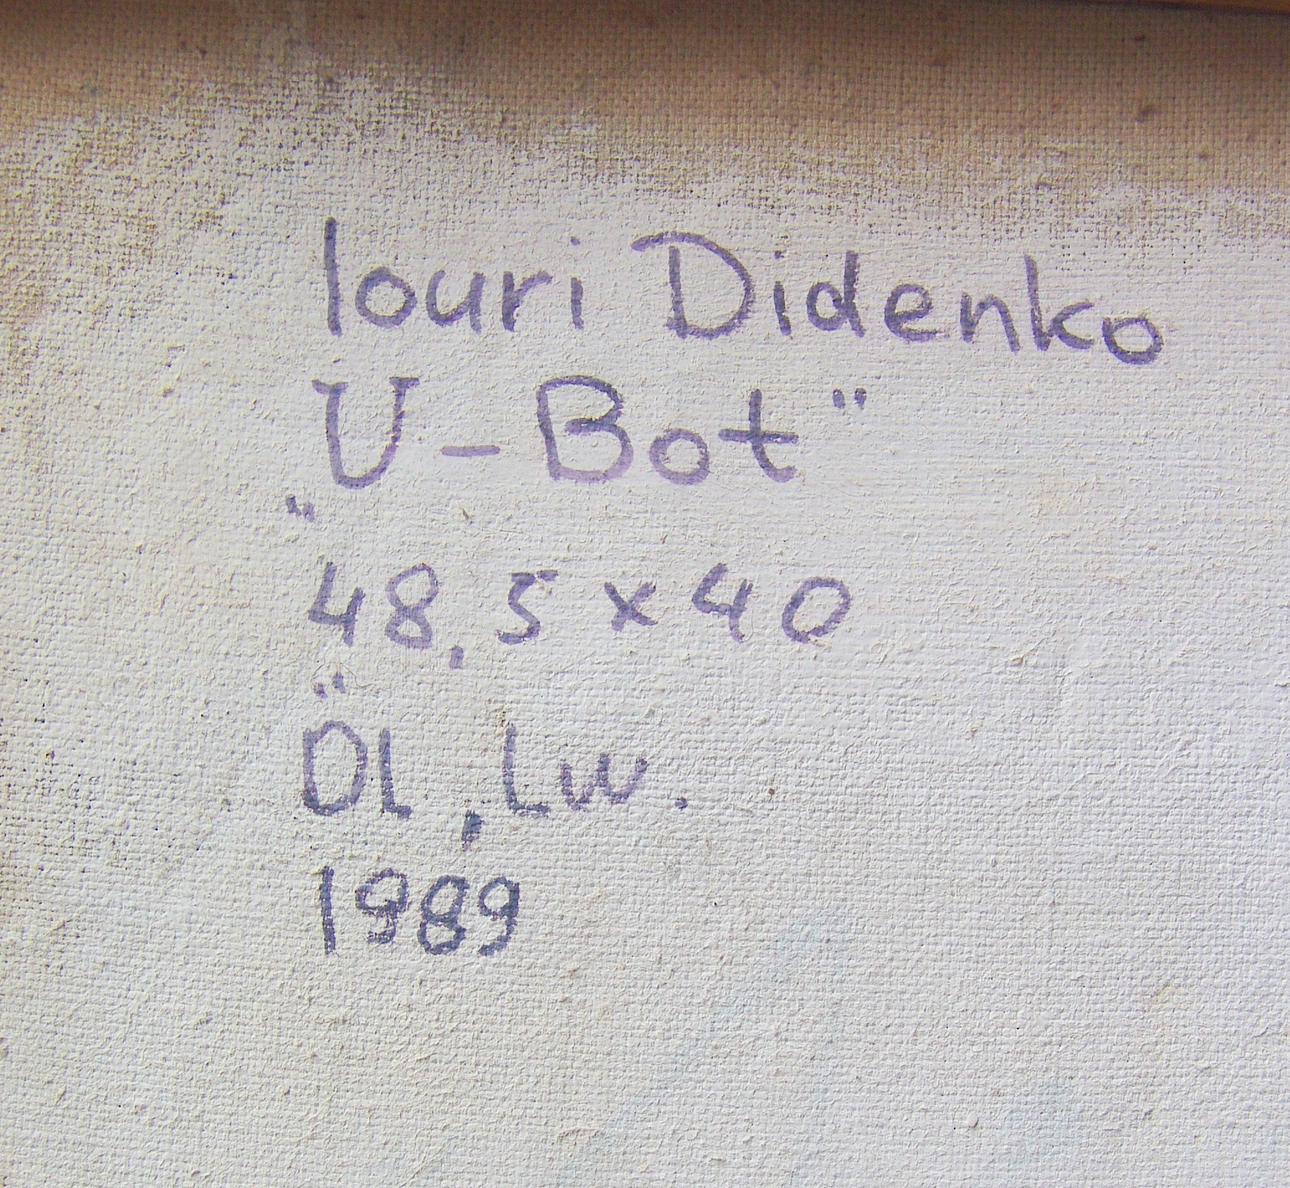 Iouri Didenko
„U-Bot"
48,5 x 40
Öl, Lw.
1989